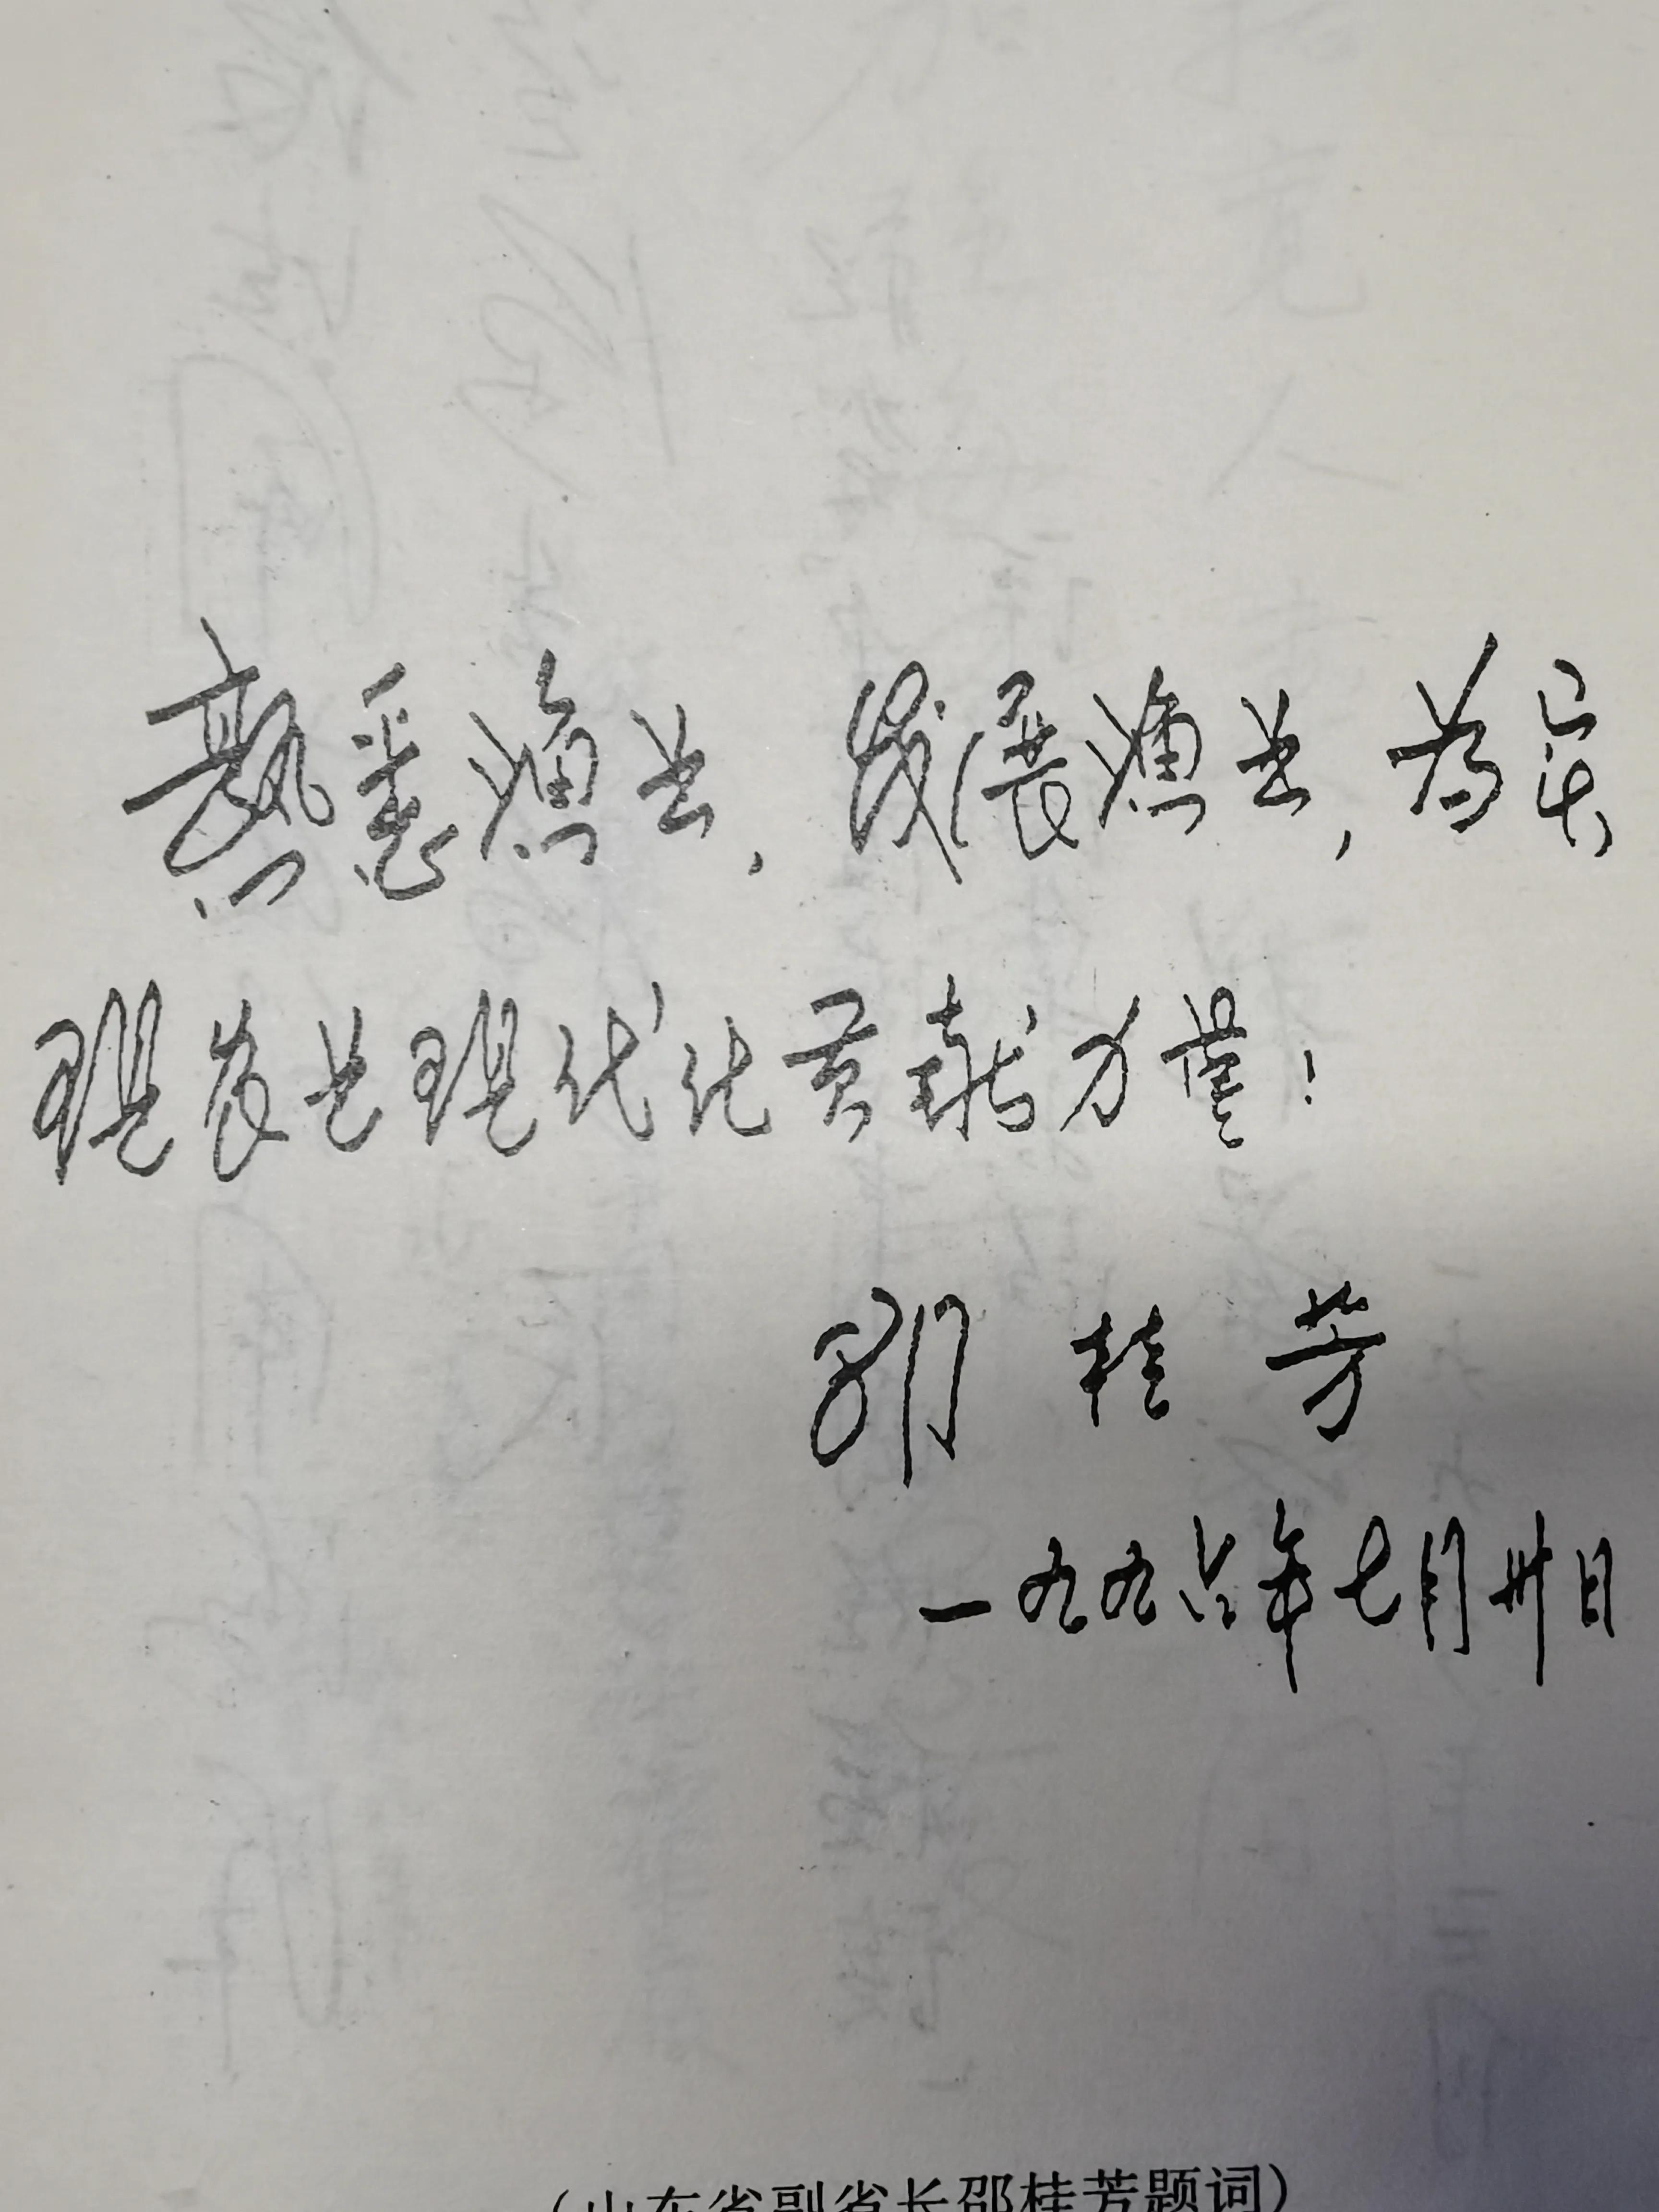 熟悉渔业,发展渔业,为实
现农业现代化贡献力量!
邵桂芳
一九九六年七月卅日
(山东省副省长邵桂芳题词)